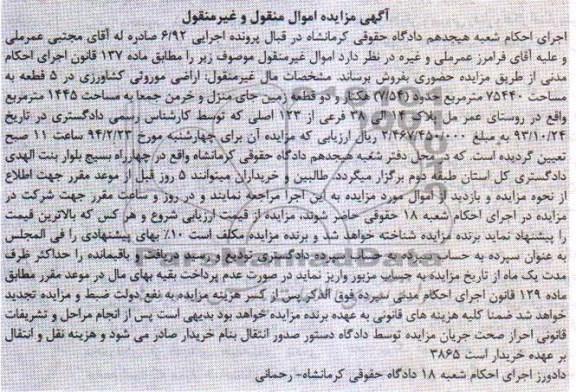 آگهی مزایده اموال منقول و غیرمنقول
اجرای احکام شعبه هیجدهم دادگاه حقوقی کرمانشاه در قبال پرونده اجرایی ۶/۹۲ صادره له آقای مجتبی عمرملی
و علیه آقای فرامرز عمرملی و غیره در نظر دارد اموال غیرمنقول موصوف زیر را مطابق ماده ۱۳۷ قانون اجرای احکام
مدنی از طریق مزایده حضوری بفروش برساند. مشخصات مال غیرمنقول: اراضی موروثی کشاورزی در ۵ قطعه به
مساحت ۷۵۴۴۰ مترمربع حدود (۷/۵۴) هکتار و دو قطعه زمین جای منزل و خرمن جمعا به مساحت ۱۴۴۵ مترمربع
واقع در روستای عمر مل پلاک ۱۴ و ۳۸ فرعی از ۱۲۳ اصلی که توسط کارشناس رسمی دادگستری در تاریخ
۹۳/۱۰/۲۴ به مبلغ ۲/۴۶۷/۴۵۰/۰۰۰ ریال ارزیابی که مزایده آن برای چهارشنبه مورخ ۹۴/۲/۲۳ ساعت ۱۱ صبح
تعیین گردیده است. که در محل دفتر شعبه هیجدهم دادگاه حقوقی کرمانشاه واقع در چهارراه بسیج بلوار بنت الهدی
دادگستری کل استان طبقه دوم برگزار میگردد. طالبین و خریداران میتوانند ۵ روز قبل از موعد مقرر جهت اطلاع
از نحوه مزایده و بازدید از اموال مورد مزایده به این اجرا مراجعه نمایند و در روز و ساعت مقرر جهت شرکت در
مزایده در اجرای احکام شعبه ۱۸ حقوقی حاضر شوند، مزایده از قیمت ارزیابی شروع و هر کس که بالاترین قیمت
را پیشنهاد نماید برنده مزایده شناخته خواهد شد و برنده مزایده مکلف است ۱۰٪ بهای پیشنهادی را فی المجلس
به عنوان سپرده به حساب سپرده به حساب سپرده دادگستری تودیع و رسید دریافت و باقیمانده را حداکثر ظرف
مدت یک ماه از تاریخ مزایده به حساب مزبور واریز نماید در صورت عدم پرداخت بقیه بهای مال در موعد مقرر مطابق
ماده ۱۲۹ قانون اجرای احکام مدنی سپرده فوق الذکر پس از کسر هزینه مزایده به نفع دولت ضبط و مزایده تجدید
خواهد شد ضمنا کلیه هزینه های قانونی به عهده برنده مزایده خواهد بود بدیهی است پس از انجام مراحل و تشریفات
قانونی احراز صحت جریان مزایده توسط دادگاه دستور صدور انتقال بنام خریدار صادر می شود و هزینه نقل و انتقال
بر عهده خریدار است ۳۸۶۵
دادورز اجرای احکام شعبه ۱۸ دادگاه حقوقی کرمانشاه- رحمانی